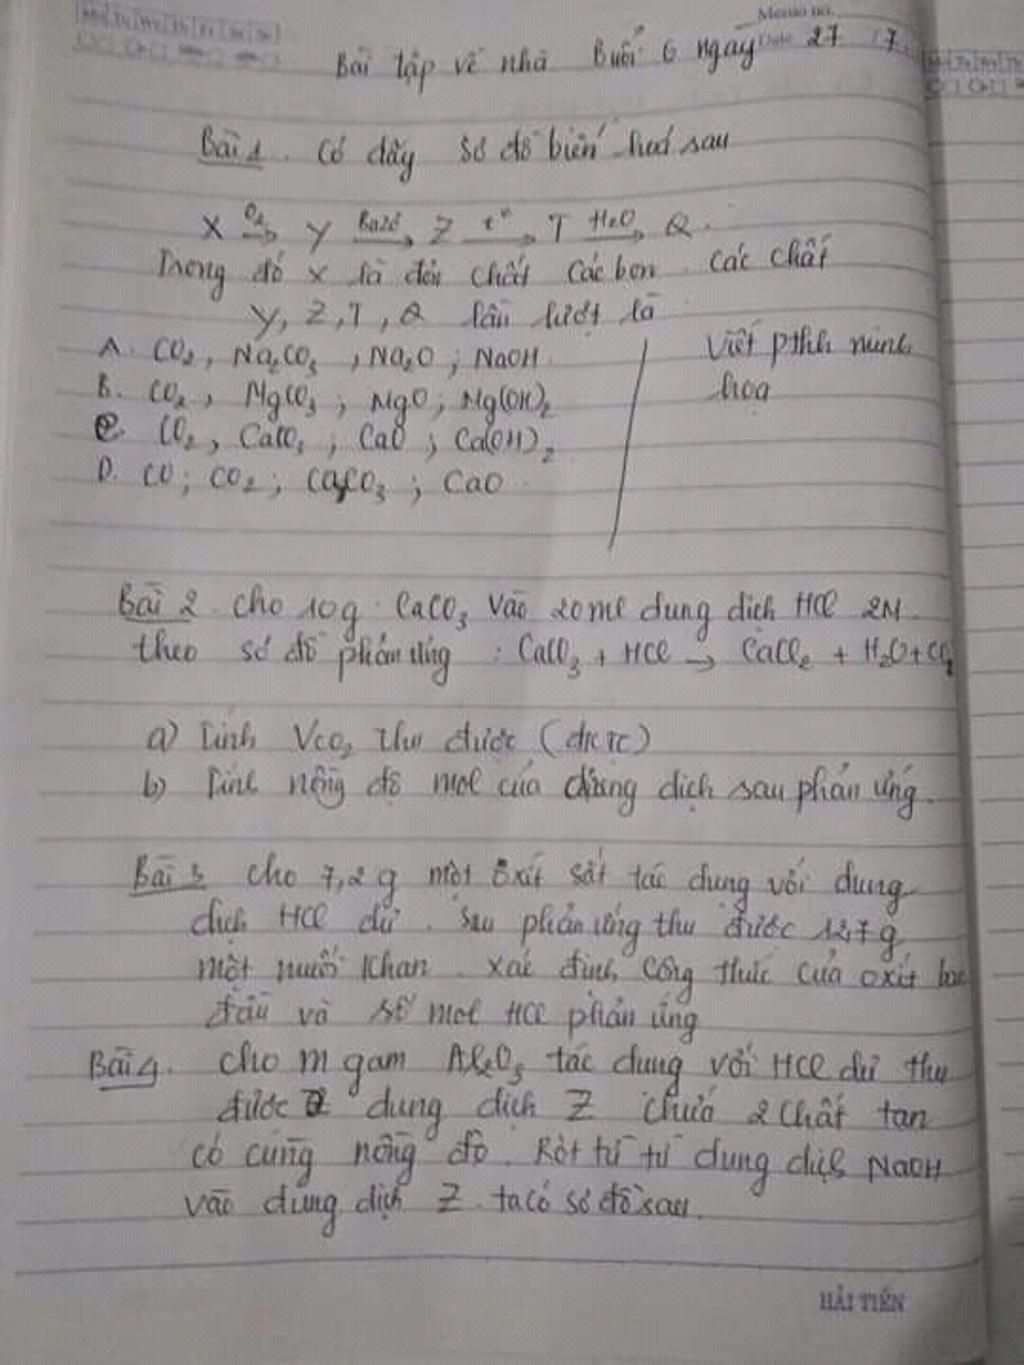 Memo no.
Bài tập về nhà Buổi 6 ngày Date 27 / 7.
Bài 1. Có dãy sơ đồ biến hoá sau
X —O₂→ Y —Bazơ→ Z —t°→ T —H₂O→ Q.
Trong đó X là đơn chất Các bon. Các chất
Y, Z, T, Q lần lượt là
A. CO₂, Na₂CO₃, Na₂O; NaOH
B. CO₂, MgCO₃; MgO; Mg(OH)₂
C. CO₂, CaCO₃; CaO; Ca(OH)₂
D. CO; CO₂; CaCO₃; CaO
Viết pthh minh
hoạ
Bài 2. Cho 10g CaCO₃ vào 20ml dung dịch HCl 2M.
theo sơ đồ phản ứng: CaCO₃ + HCl → CaCl₂ + H₂O + CO₂
a) Tính VCO₂ thu được (đktc)
b) Tính nồng độ mol của dung dịch sau phản ứng.
Bài 3 Cho 7,2 g một Oxit sắt tác dụng với dung
dịch HCl dư. Sau phản ứng thu được 12,7 g
một muối khan. Xác định công thức của oxit ban
đầu và số mol HCl phản ứng
Bài 4. Cho m gam Al₂O₃ tác dụng với HCl dư thu
được dung dịch Z chứa 2 chất tan
có cùng nồng độ. Rót từ từ dung dịch NaOH
vào dung dịch Z. ta có sơ đồ sau.
HẢI TIẾN